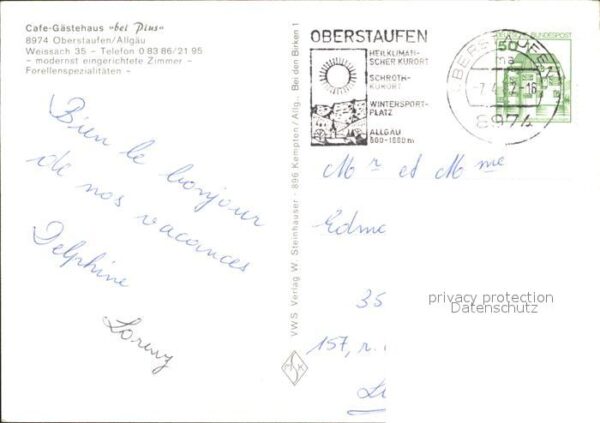 Cafe-Gästehaus "bei Pius"
8974 Oberstaufen/Allgäu
Weissach 35 - Telefon 0 83 86/21 95
- modernst eingerichtete Zimmer -
Forellenspezialitäten -
Bien le bonjour
de nos vacances
Delphine
VWS Verlag W. Steinhauser · 896 Kempten/Allg. Bei den Birken 1
OBERSTAUFEN
HEILKLIMATI-
SCHER KURORT
SCHROTH-
KURORT
WINTERSPORT-
PLATZ
ALLGÄU
800-1800 m
OBERSTAUFEN
8974
BUNDESPOST
50
Mr et Mme
Edm
35
157, r.
privacy protection
Datenschutz